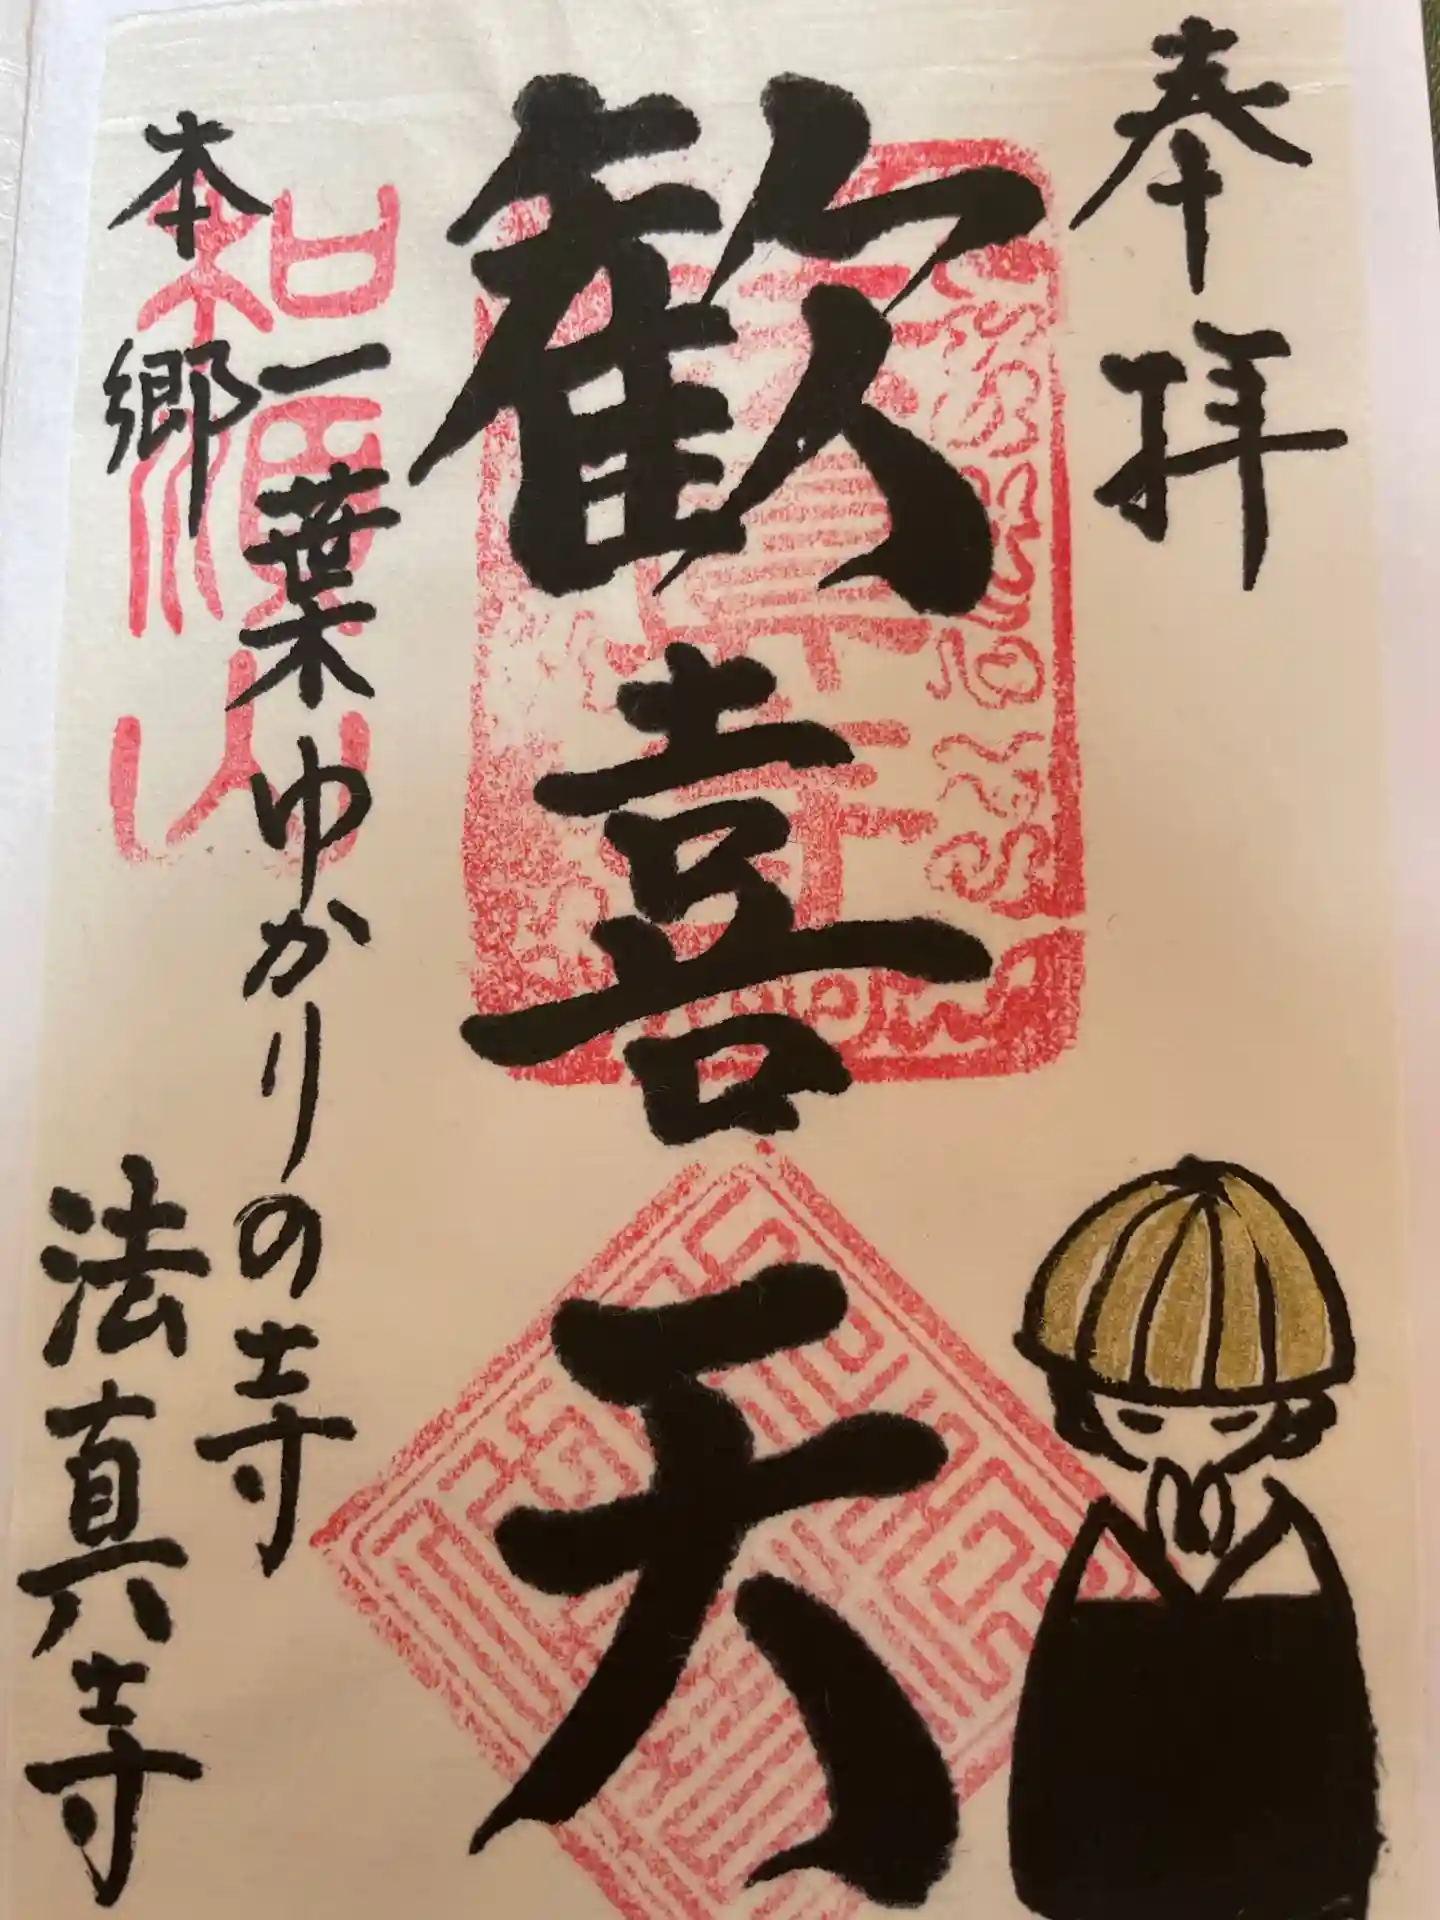 奉拝
歓喜天
一葉ゆかりの寺
本郷 法真寺